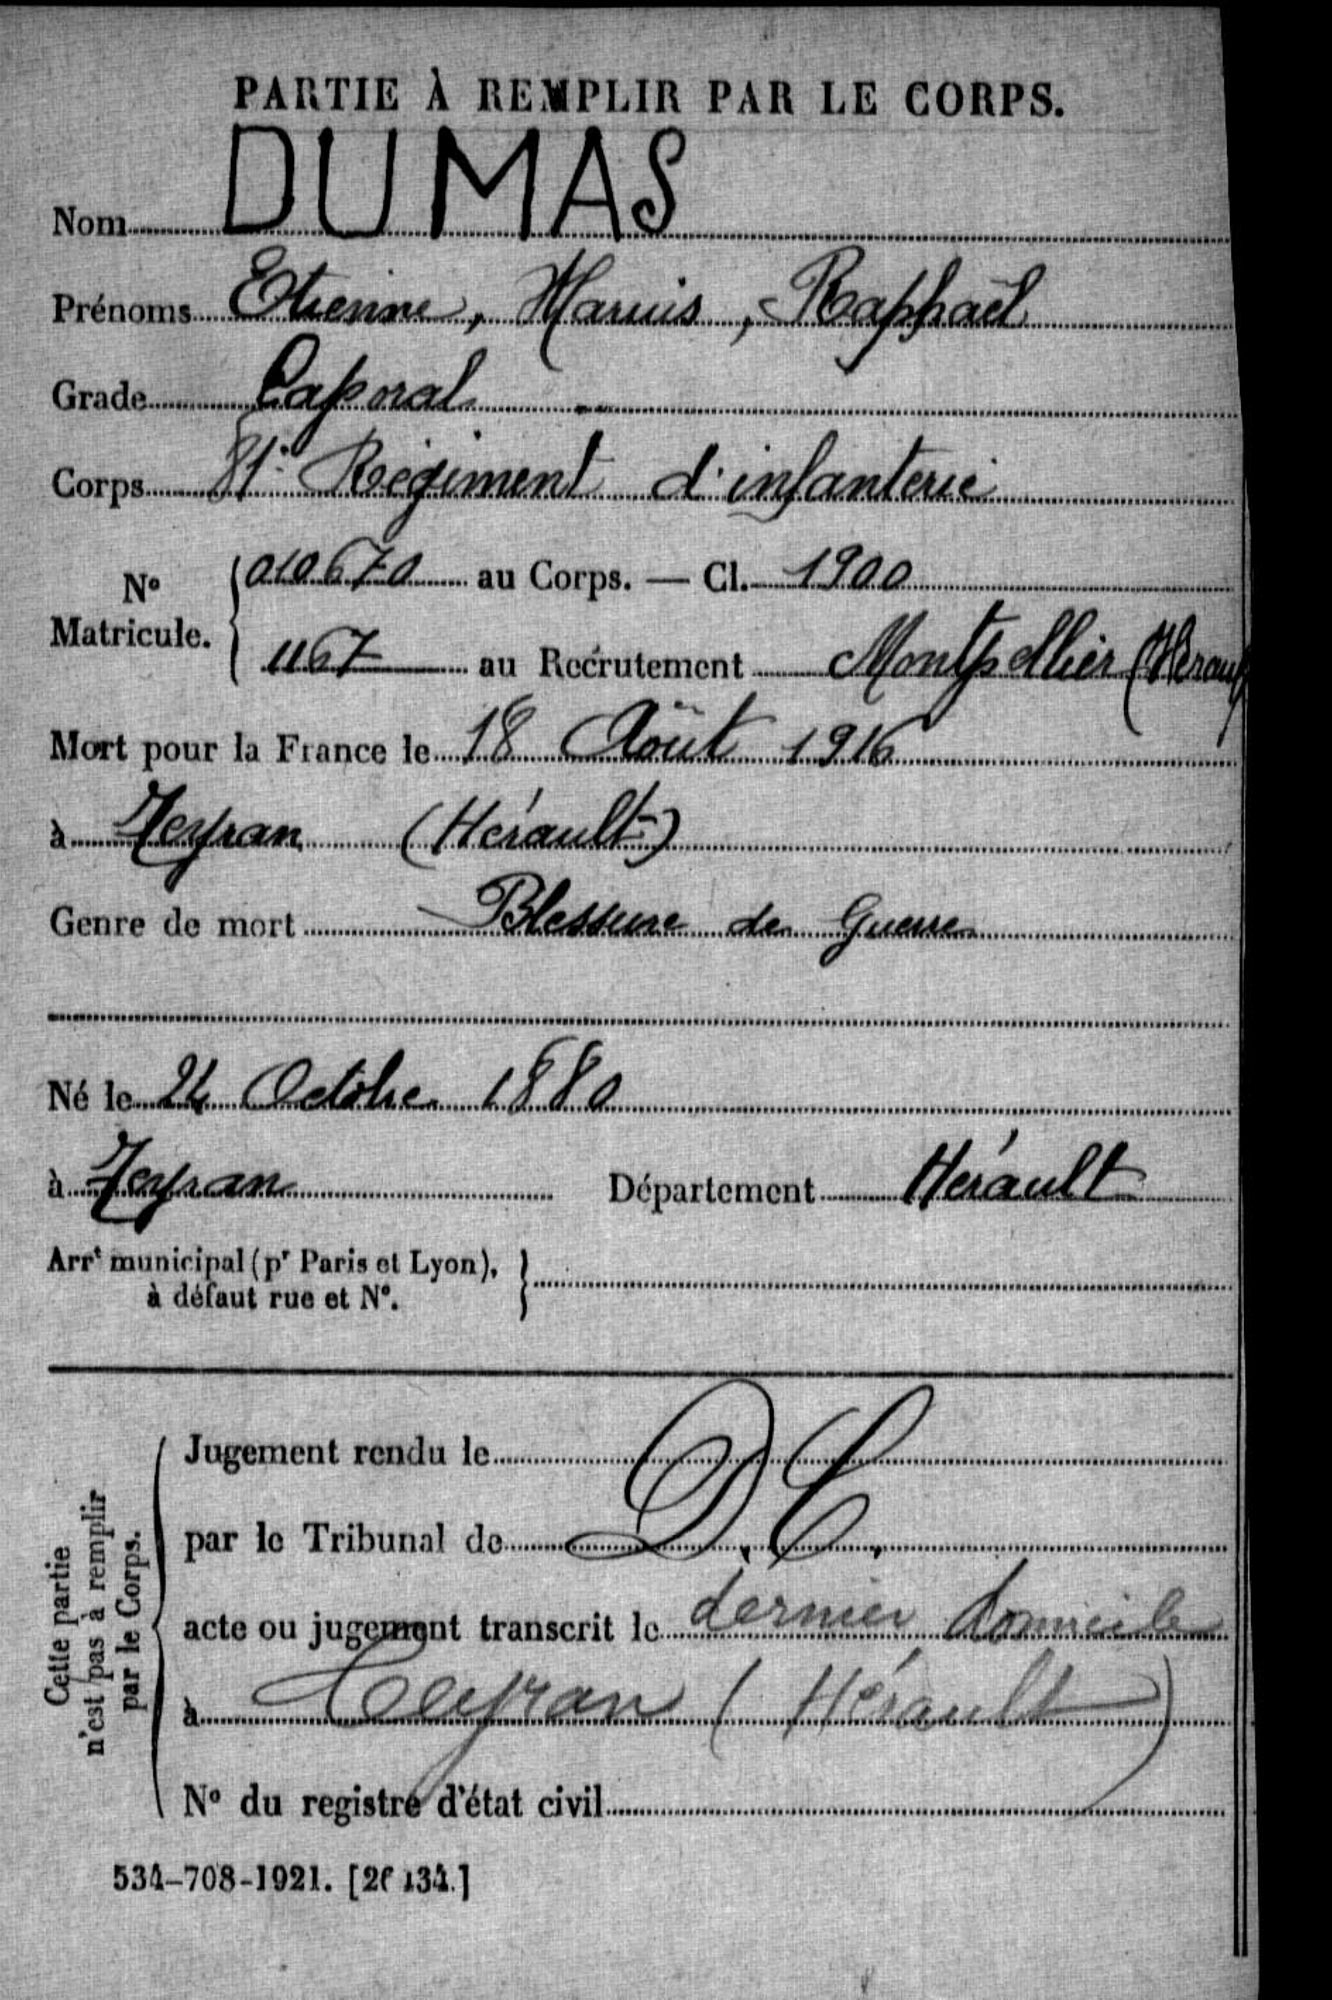 PARTIE À REMPLIR PAR LE CORPS.
Nom DUMAS
Prénoms Etienne, Marius, Raphaël
Grade Caporal
Corps 81e Régiment d'infanterie
No Matricule. 010670 au Corps. — Cl. 1900
1167 au Recrutement Montpellier (Hérault
Mort pour la France le 18 Août 1916
à Teyran (Hérault)
Genre de mort Blessure de Guerre
Né le 24 Octobre 1880
à Teyran Département Hérault
Arrt municipal (pr Paris et Lyon),
à défaut rue et No.
Cette partie
n'est pas à remplir
par le Corps.
Jugement rendu le
par le Tribunal de D.C.
acte ou jugement transcrit le dernier domicile
à Teyran (Hérault)
No du registre d'état civil
534-708-1921. [26134.]